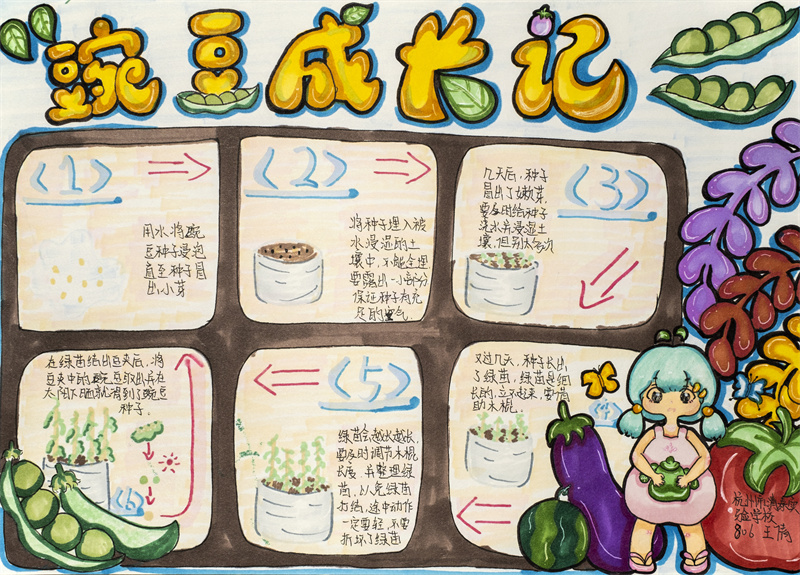 豌豆成长记
(1)
用水将豌
豆种子浸泡
直至种子冒
出小芽
(2)
将种子埋入被
水浸湿的土
壤中,不能全埋
要露出一小部分
保证种子有充
足的空气.
(3)
几天后,种子
冒出了嫩芽,
要及时给种子
浇水并浸湿土
壤,但别太多次
(4)
又过几天,种子长出
了绿苗,绿苗是细
长的,立不起来,要借
助木棍.
(5)
绿苗会越长越长,
要及时调节木棍
长度,并整理绿
苗,以免绿苗
打结,途中动作
一定要轻,不要
折坏了绿苗
(6)
在绿苗结出豆夹后,将
豆夹中的豌豆取出并在
太阳下晒就得到了豌豆
种子.
杭州市
验学校
806 王